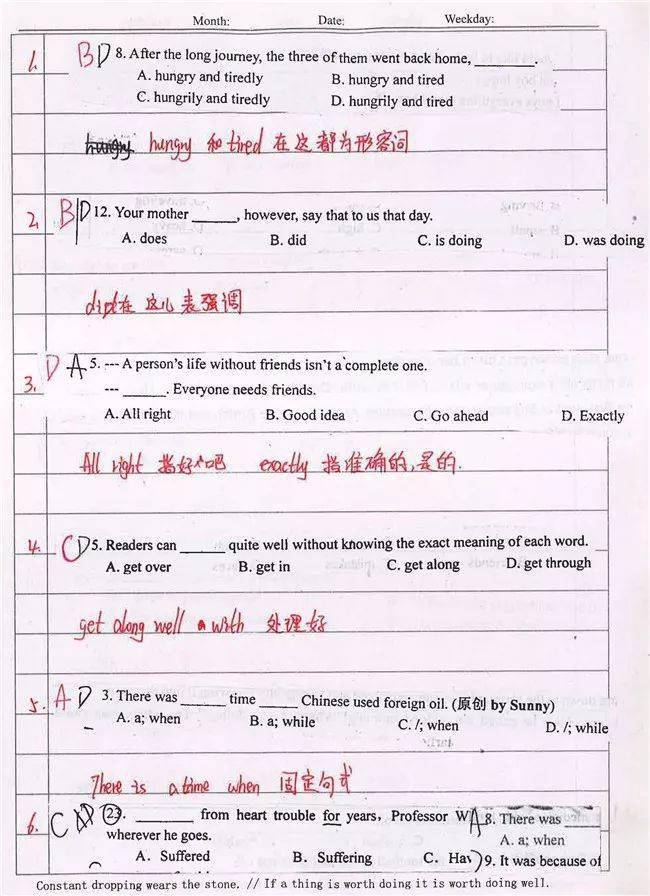 Month: Date: Weekday:
1. B D 8. After the long journey, the three of them went back home, ______
A. hungry and tiredly B. hungry and tired
C. hungrily and tiredly D. hungrily and tired
hungry 和 tired 在这都为形容词
2. B D 12. Your mother ______, however, say that to us that day.
A. does B. did C. is doing D. was doing
did在这儿表强调
3. D A 5. --- A person's life without friends isn't a complete one.
--- ______. Everyone needs friends.
A. All right B. Good idea C. Go ahead D. Exactly
All right 指好吧 exactly 指准确的,是的.
4. C D 5. Readers can ______ quite well without knowing the exact meaning of each word.
A. get over B. get in C. get along D. get through
get along well with 处理好
5. A D 3. There was ______ time _____ Chinese used foreign oil. (原创 by Sunny)
A. a; when B. a; while C. /; when D. /; while
There is a time when 固定句式
6. C 23. ________ from heart trouble for years, Professor W
wherever he goes.
A. Suffered B. Suffering C. Hav
A 8. There was
A. a; when
9. It was because of
Constant dropping wears the stone. // If a thing is worth doing it is worth doing well.